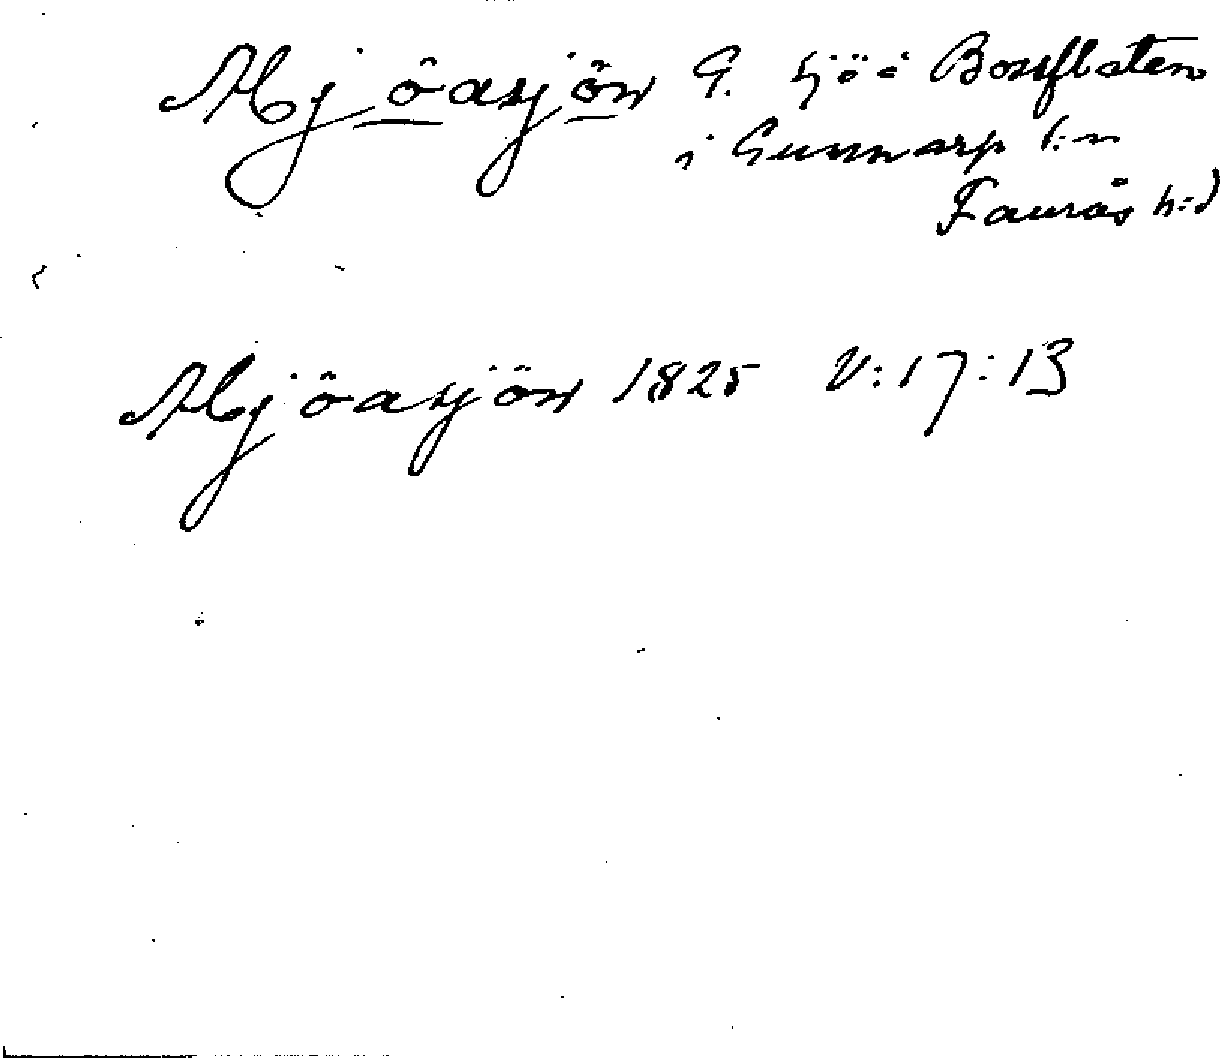 Mjöasjön G. sjö å Bossflaten
i Gunnarp s:n
Faurås h:d
Mjöasjön 1825 V:17:13